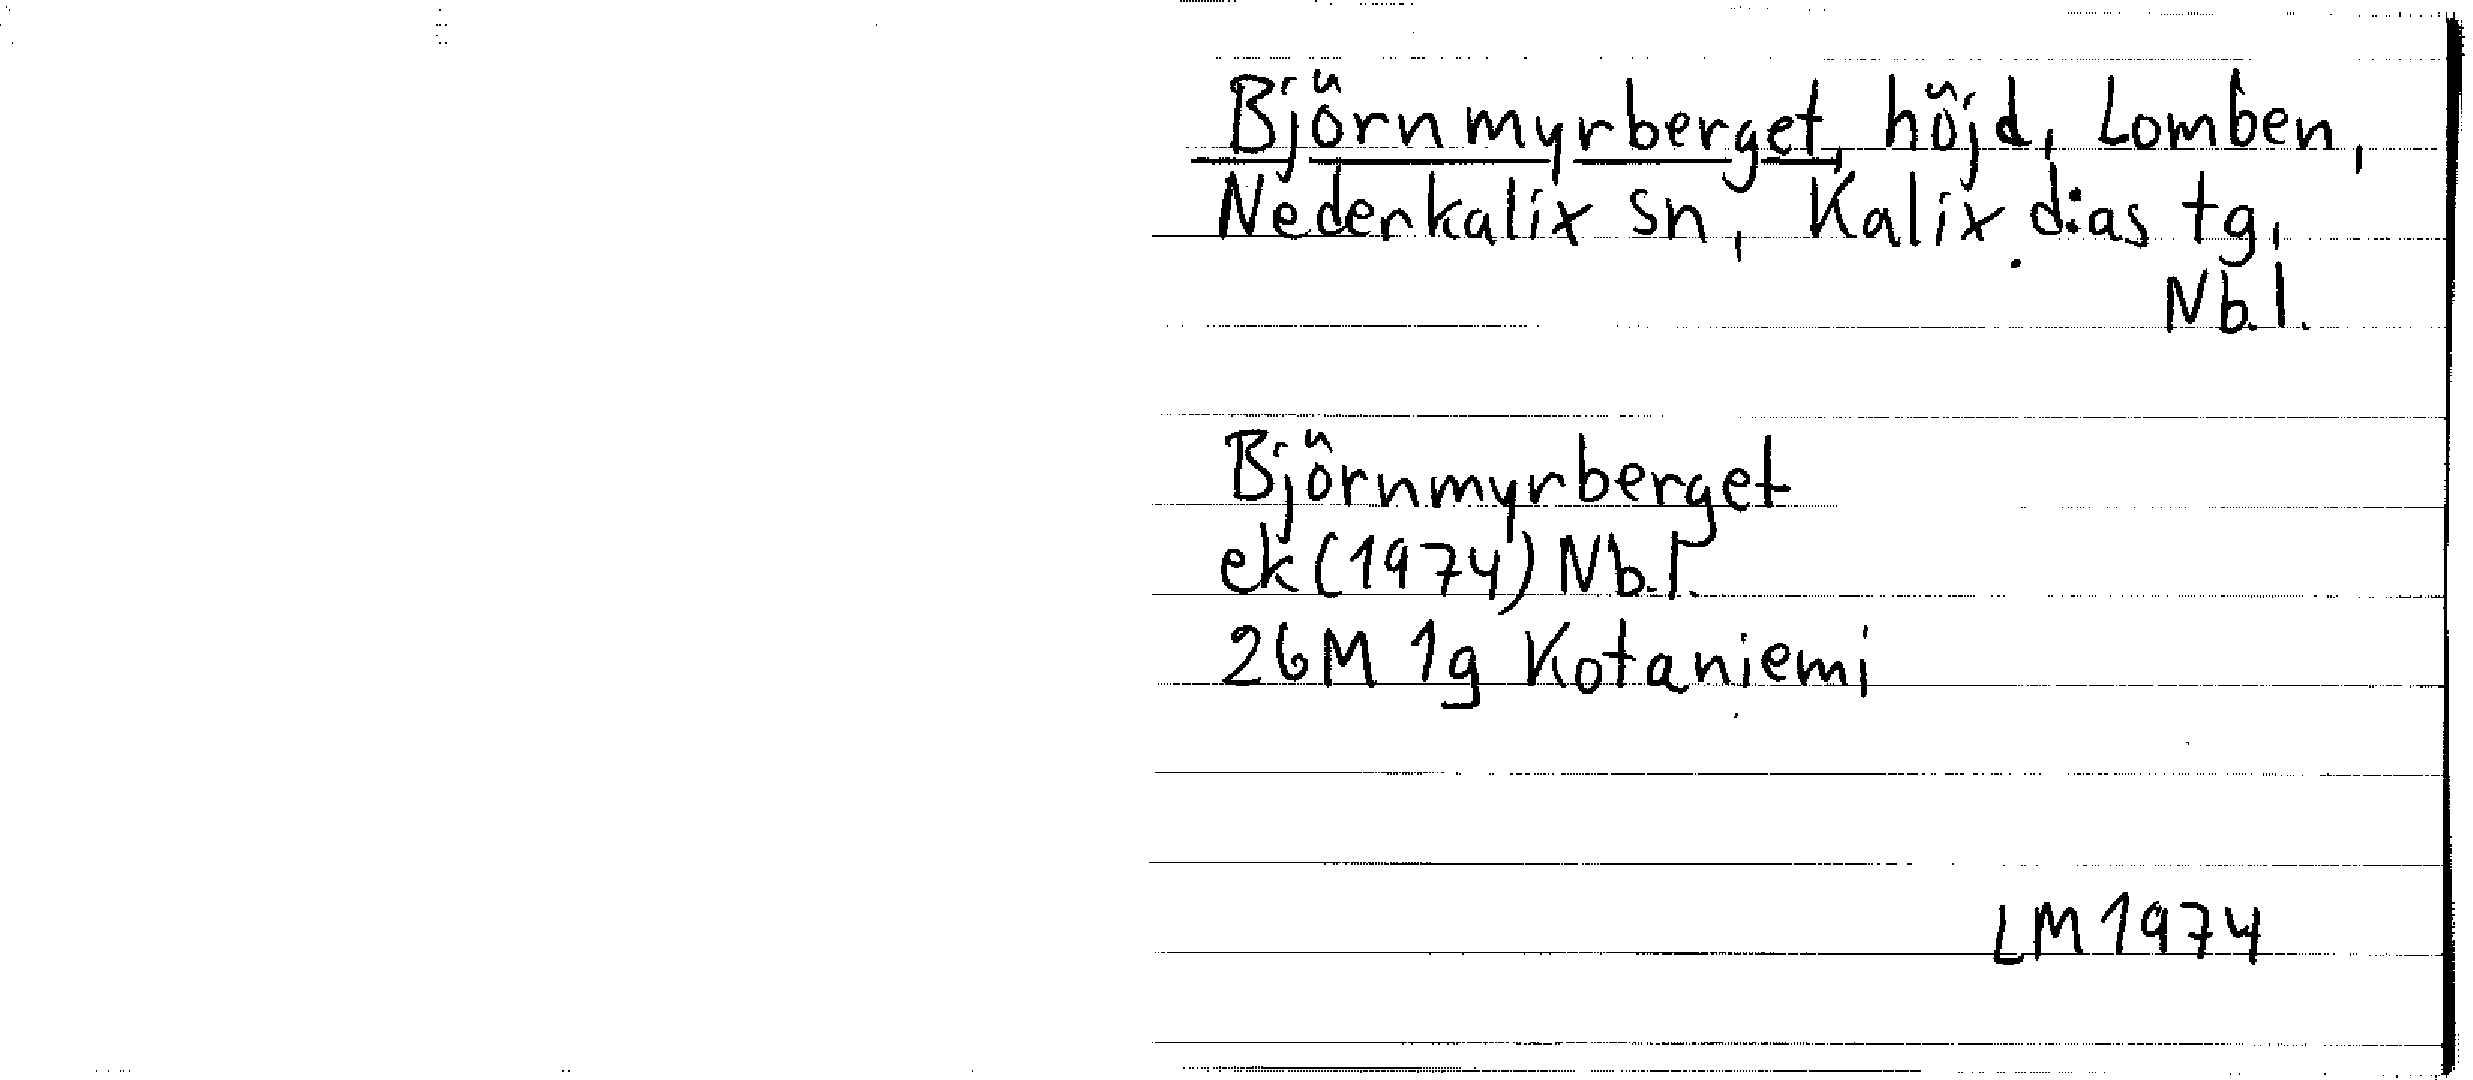 Björnmyrberget, höjd, Lomben,
Nederkalix sn, Kalix d:as tg,
Nb.l.
Björnmyrberget
ek (1974) Nb.l.
26M 1g Kotaniemi
LM 1974